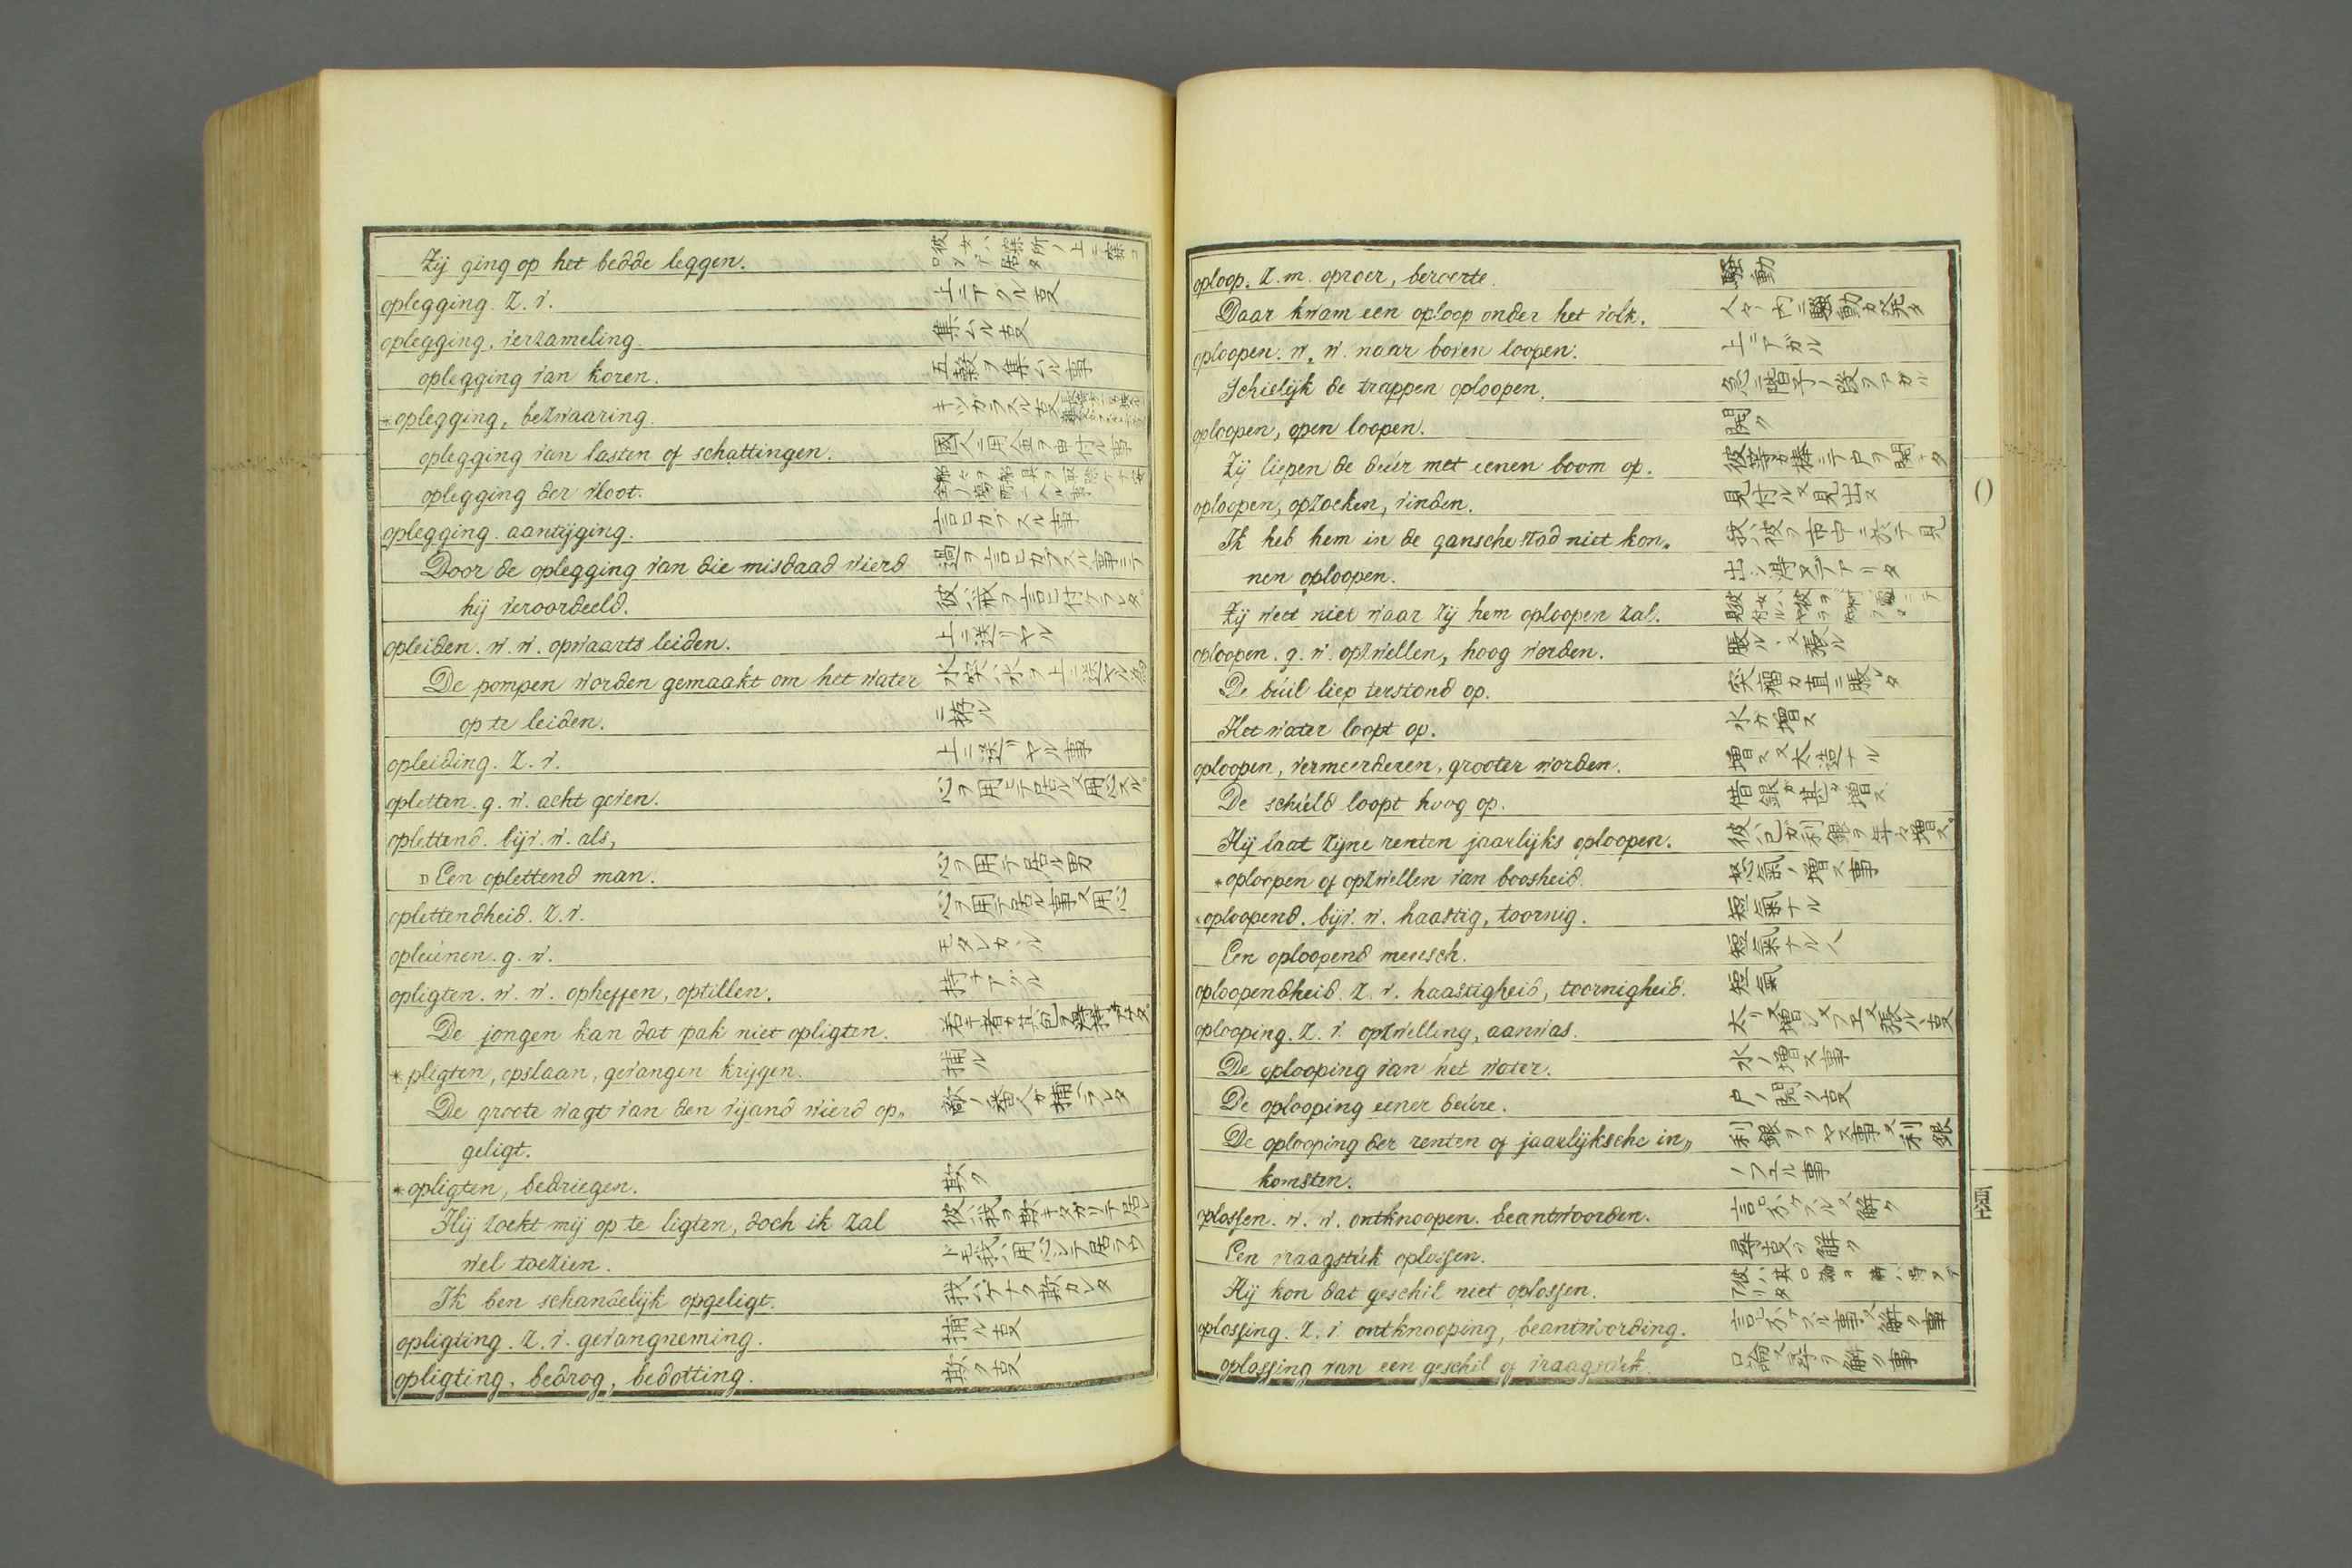 Zij ging op het bedde leggen.
oplegging. Z. v. 上ニアグル叓
oplegging, verzameling. 集ムル叓
oplegging van koren. 五穀ヲ集ムル事
*oplegging, bezwaaring. キツガラスル叓
oplegging van lasten of schattingen. 國人ニ用金ヲ申付ル事
oplegging der vloot.
oplegging. aantijging. 言ヒガブスル事
Door de oplegging van die misdaad wierd 過ヲ言ヒカブスル事ニテ
hij veroordeeld. 彼ハ戒ヲ言ヒ付ケラレタ
opleiden. w. w. opwaarts leiden. 上ニ送リヤル
De pompen worden gemaakt om het water
op te leiden. ニ拵ル
opleiding. Z. v. 上ニ送リヤル事
opletten. g. w. acht geven.
oplettend. bijv. w. als,
Een oplettend man. 心ヲ用テ居ル男
oplettendheid. Z. v. 心ヲ用テ居ル事又用心
opleúnen. g. w. モタレカヽル
opligten. w. w. opheffen, optillen. 持チアグル
De jongen kan dat pak niet opligten.
*pligten, opslaan, gevangen krijgen. 捕ル
De groote wagt van den vijand wierd op„ 敵ノ番人ガ捕ヘラレタ
geligt.
*opligten, bedriegen. 欺ク
Hij zoekt mij op te ligten, doch ik zal 彼ハ我ヲ欺キタガリテ居レ
wel toezien. ドモ我ハ用心シテ居ラウ
Ik ben schandelijk opgeligt.
opligting. Z. v. gevangneming. 捕ル叓
opligting, bedrog, bedotting. 欺ク叓
oploop. Z. m. oproer, beroerte. 騒動
Daar kwam een oploop onder het volk. 人々ノ内ニ騒動ガ発タ
oploopen. w. w. naar boven loopen. 上ニアガル
Schielijk de trappen oploopen. 急ニ階子ノ段ヲアガル
oploopen, open loopen. 開ク
Zij liepen de deúr met eenen boom op. 彼等ガ棒ニテ戸ヲ開タ
oploopen, opzoeken, vinden. 見付ル又見出ス
Ik heb hem in de gansche stad niet kon„ 我ハ彼ヲ市中ニ於テ見
nen oploopen. 出シ得ズアリタ
Zij weet niet waar zij hem oploopen zal.
oploopen. g. w. opzwellen, hoog worden. 脹ル又張ル
De búil liep terstond op. 突瘤ガ直ニ脹レタ
Het water loopt op. 水ガ増ス
oploopen, vermeerderen, grooter worden. 増ス又大造ナル
De schúld loopt hoog op. 借銀ガ甚ダ増ス
Hij laat zijne renten jaarlijks oploopen. 彼ハ己ガ利銀ヲ年々増ス
*oploopen of opzwellen van boosheid. 怒氣ノ増ス事
*oploopend. bijv. w. haastig, toornig. 短氣ナル
Een oploopend mensch. 短氣ナル人
oploopendheid. Z. v. haastigheid, toornigheid. 短氣
oplooping. Z. v. opzwelling, aanwas.
De oplooping van het water. 水ノ増ス事
De oplooping eener deúre. 戸ノ開ク叓
De oplooping der renten of jaarlijksche in„ 利銀ヲフヤス事又利銀
komsten. ノフエル事
oplossen. w. w. ontknoopen. beantwoorden. 言ヒホグスル又解ク
Een vraagstúk oplossen.
Hij kon dat geschil niet oplossen.
oplossing. Z. v. ontknooping, beantwoording. 言ヒホグスル事又解ク事
oplossing van een geschil of vraagstúk.